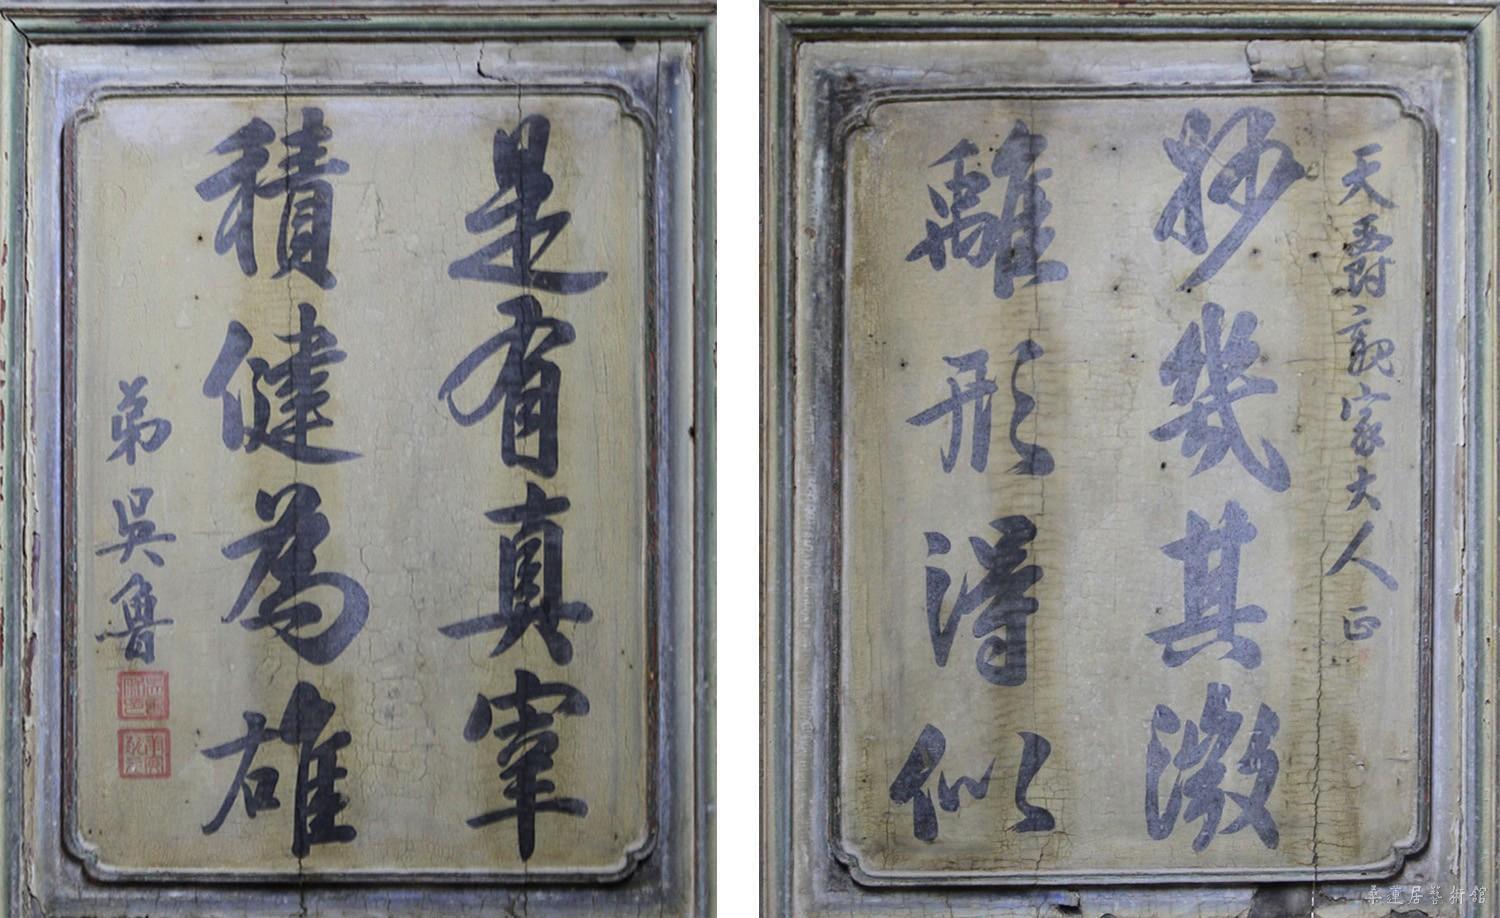 天爵親家大人正
妙幾其微
離形得似
是有真宰
積健為雄
弟吳魯
桑蓮居藝術館